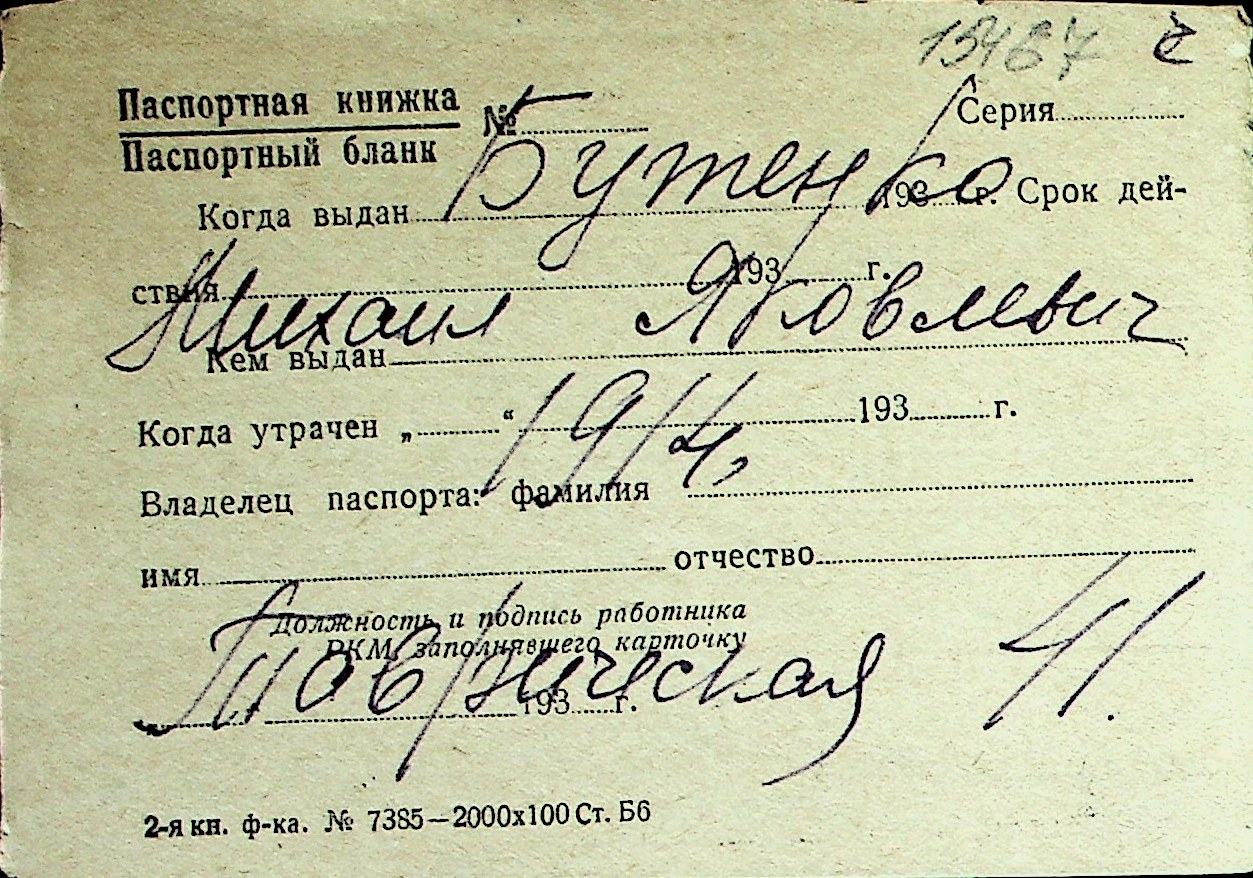 13467
Паспортная книжка № Серия
Паспортный бланк
Бутенко
Когда выдан 193 г. Срок дей-
ствия 193 г.
Михаил Яковлевич
Кем выдан
Когда утрачен „ “ 193 г.
1914,
Владелец паспорта: фамилия
имя отчество
Должность и подпись работника
РКМ, заполнявшего карточку
Таврическая 41.
193 г.
2-я кн. ф-ка. № 7385—2000x100 Ст. Б6